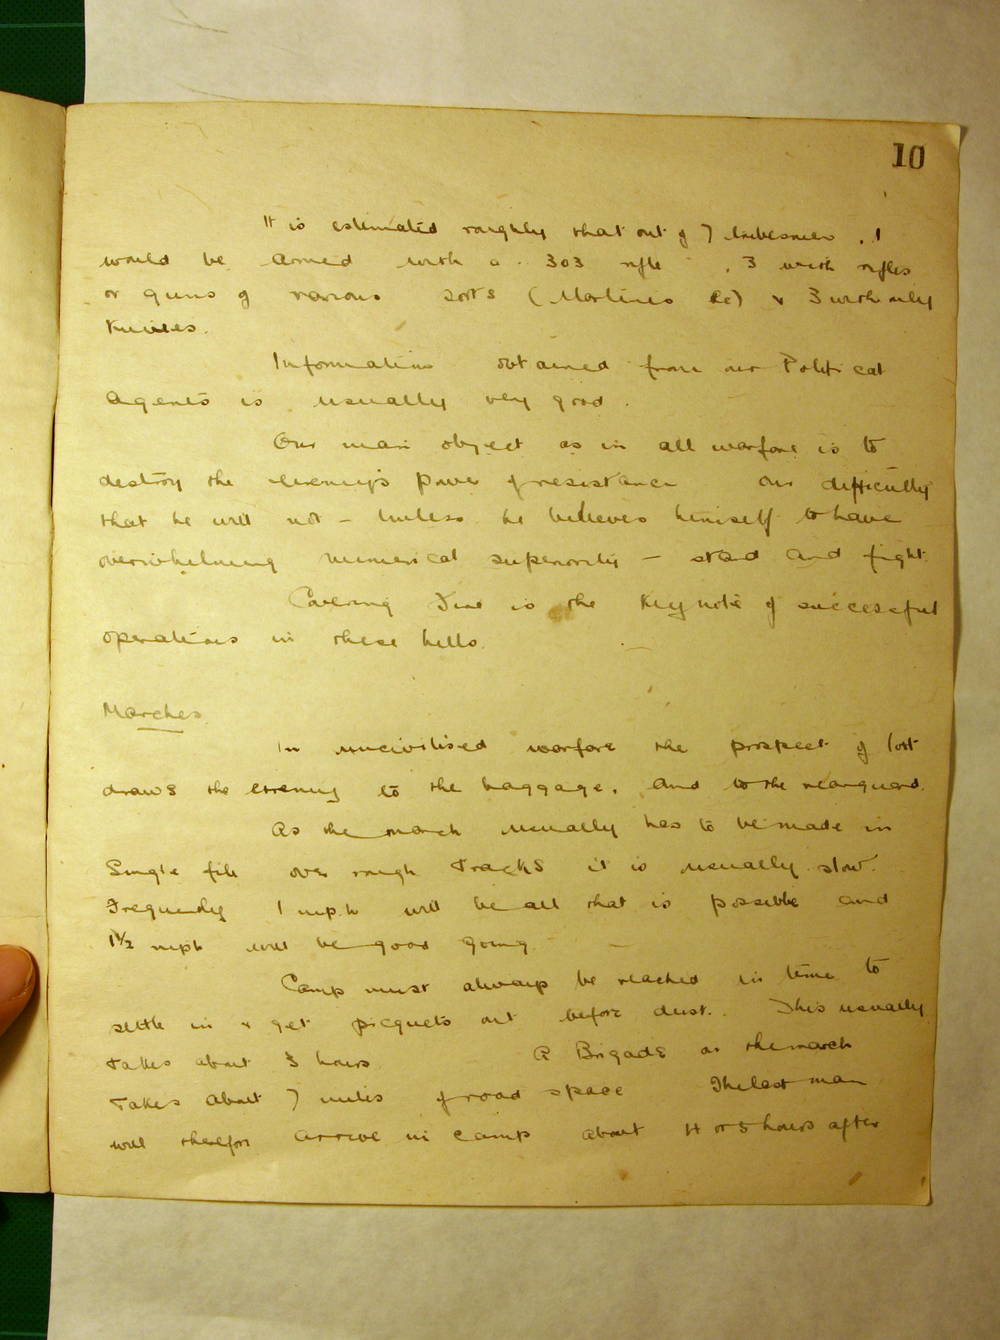 10
It is estimated roughly that out of 7 tribesmen, 1
would be armed with a .303 rifle, 3 with rifles
or guns of various sorts (Martinis &c) & 3 with only
knives.
Information obtained from our Political
Agents is usually very good.
Our main object as in all warfare is to
destroy the enemy's power of resistance our difficulty
that he will not - unless he believes himself to have
overwhelming numerical superiority - stand and fight.
Covering Fire is the Keynote of successful
operations in these hills.
Marches
In uncivilised warfare the prospect of loot
draws the enemy to the baggage, and to the rearguard.
As the march usually has to be made in
Single file over rough tracks it is usually slow.
Frequently 1 mph will be all that is possible and
1½ mph will be good going
Camp must always be reached in time to
settle in & get picquets out before dusk. This usually
takes about 3 hours A Brigade on the march
takes about 7 miles of road space The last man
will therefore arrive in camp about 4 or 5 hours after